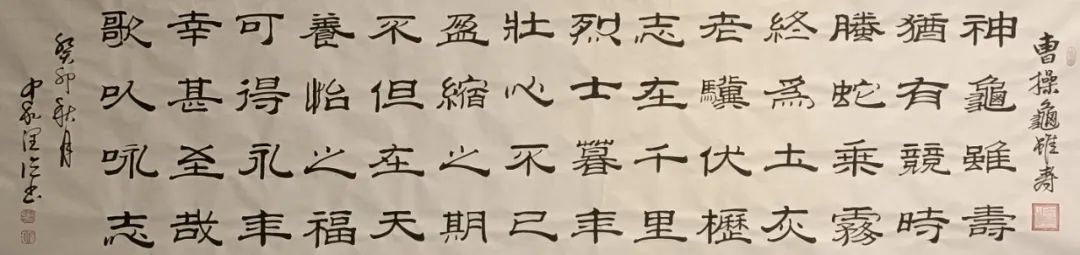 曹操龜雖寿
神龜雖壽
猶有競時
騰蛇乘霧
終爲土灰
老驥伏櫪
志在千里
烈士暮年
壯心不已
盈縮之期
不但在天
養怡之福
可得永年
幸甚至哉
歌以咏志
癸卯秋月